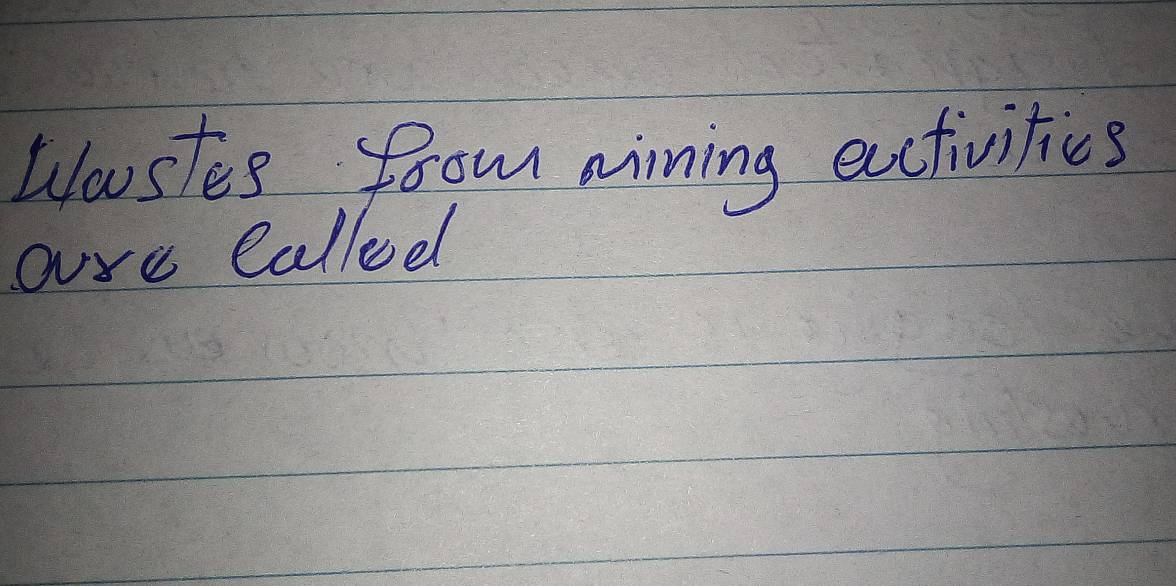 Wastes from mining activities
are called